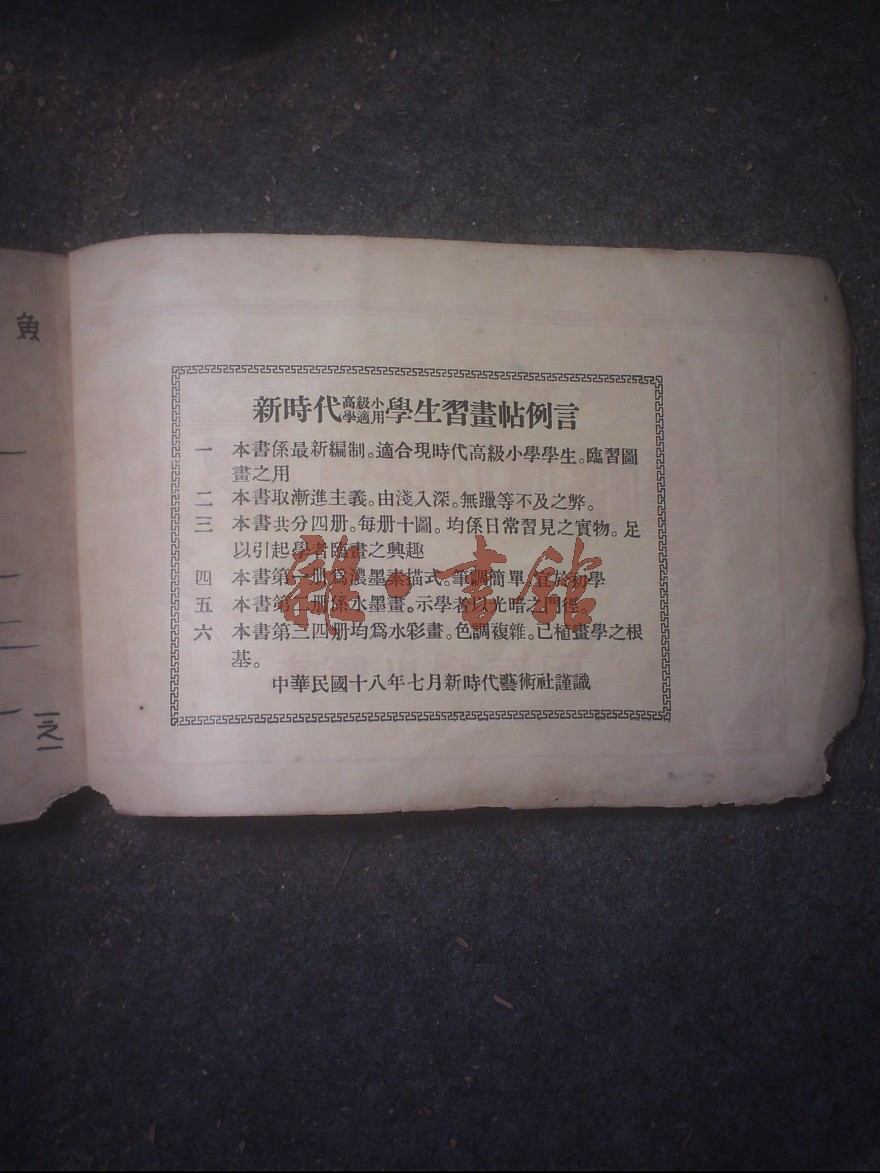 魚
一之一
新時代高級小學適用學生習畫帖例言
一 本書係最新編制。適合現時代高級小學學生。臨習圖
畫之用
二 本書取漸進主義。由淺入深。無躐等不及之弊。
三 本書共分四册。每册十圖。均係日常習見之實物。足
以引起學者臨畫之興趣
四 本書第一册爲濃墨素描式。筆調簡單。宜於初學
五 本書第二册係水墨畫。示學者以光暗之門徑。
六 本書第三四册均爲水彩畫。色調複雜。已植畫學之根
基。
中華民國十八年七月新時代藝術社謹識
雜·書館